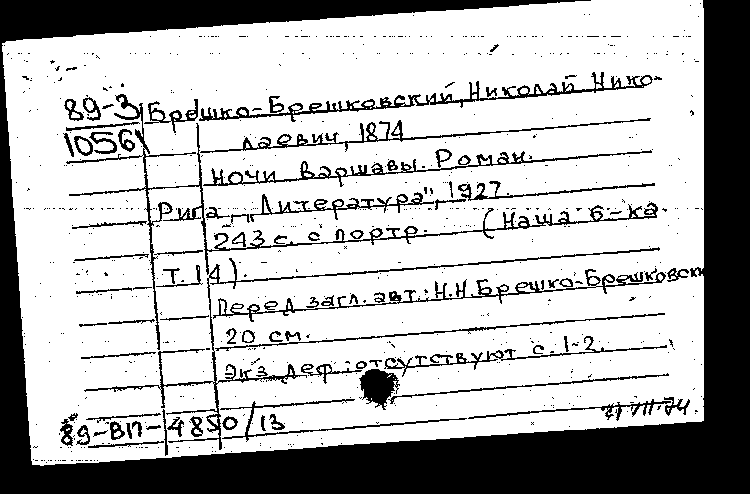 89-3 Брешко-Брешковский, Николай Нико-
10561 лаевич, 1874
Ночи Варшавы. Роман.
Рига, „Литература", 1927.
243 с. с портр. (Наша б-ка.
Т. 14).
Перед загл. авт.: Н.Н.Брешко-Брешковски
20 см.
Экз. деф.: отсутствуют с. 1-2.
89-ВП-4850/13